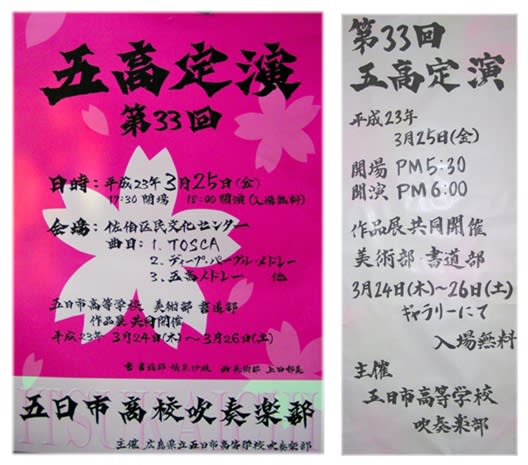 五高定演
第33回
日時:平成23年3月25日(金)
17:30開場 18:00開演(入場無料)
会場:佐伯区民文化センター
曲目:1.TOSCA
2.ディープ・パープル・メドレー
3.五高メドレー 他
五日市高等学校 美術部 書道部
作品展共同開催
平成23年 3月24日(木)〜3月26日(土)
五日市高校吹奏楽部
ITSUKAICHI
主催 広島県立五日市高等学校吹奏楽部
第33回
五高定演
平成23年
3月25日(金)
開場 PM5:30
開演 PM6:00
作品展共同開催
美術部・書道部
3月24日(木)〜26日(土)
ギャラリーにて
入場無料
主催
五日市高等学校
吹奏楽部